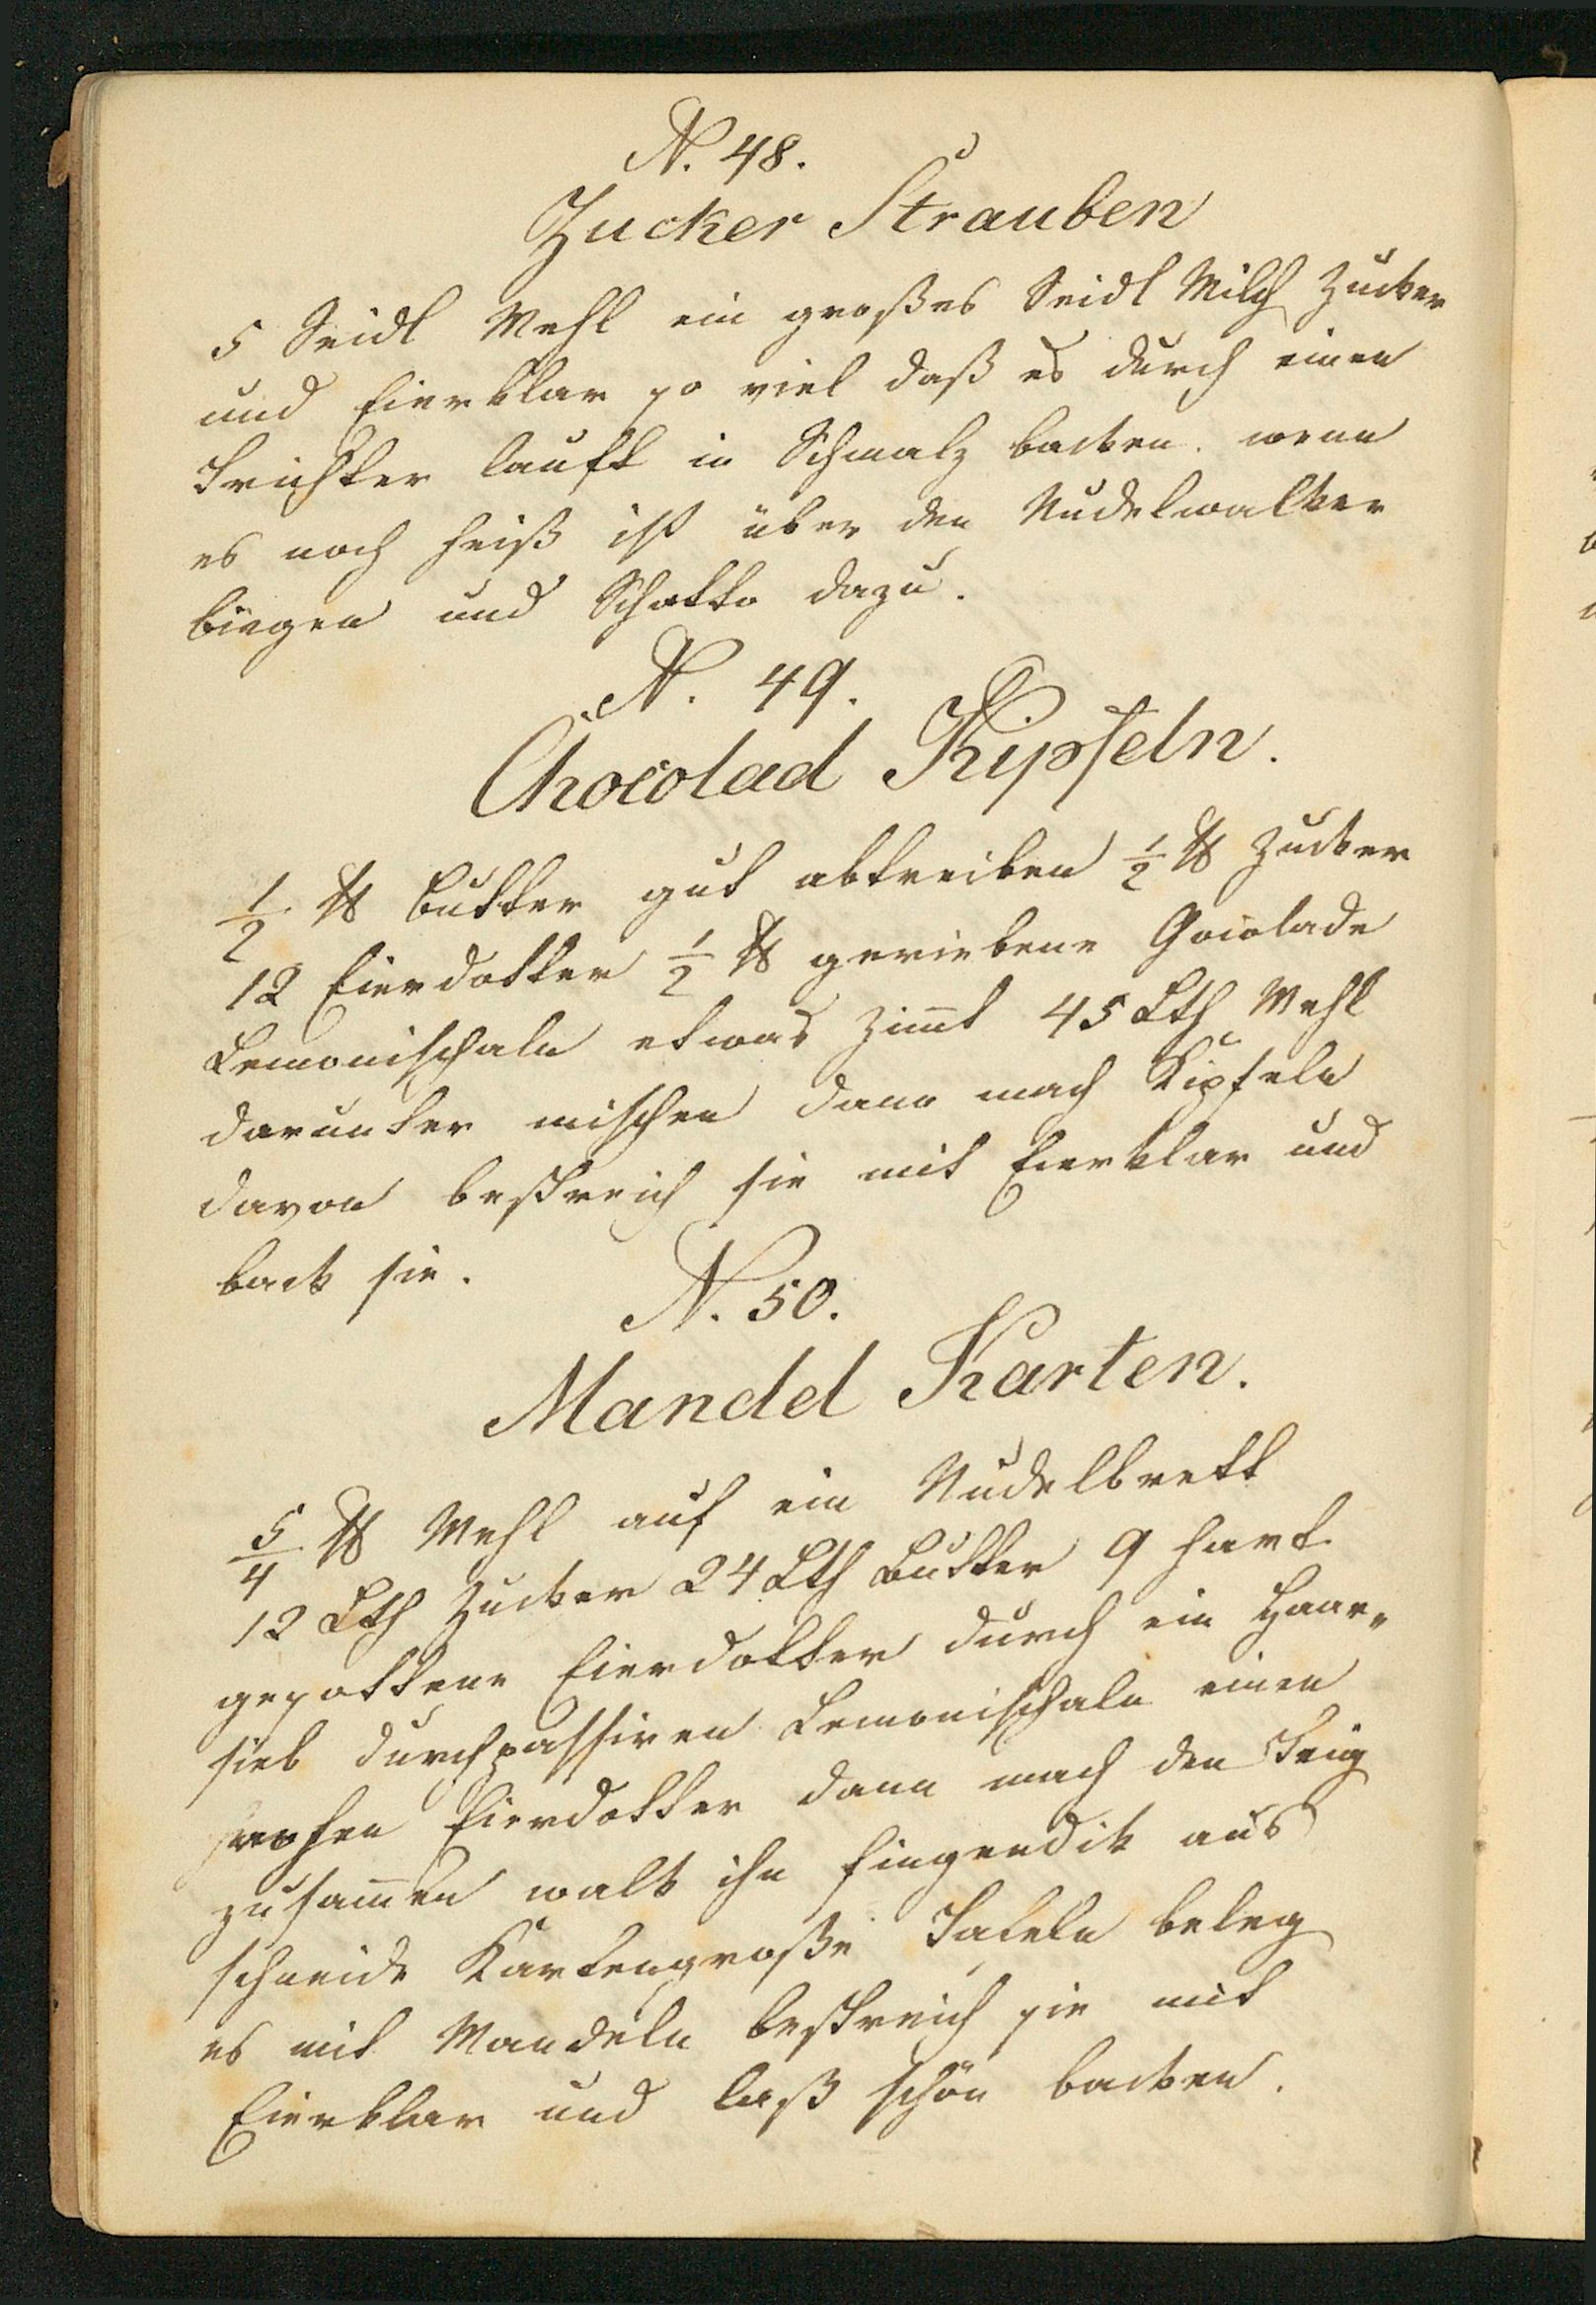 N. 48.
Zucker Strauben
5 Seidl Mehl ein großes Seidl Milch Zucker
und Eierklar so viel daß es durch einen
Trichter lauft in Schmalz backen. wenn
es noch heiß ist über den Nudelwalker
biegen und Schatto dazu.
N. 49.
Chocolad Kipfeln.
1/2 ℔ Butter gut abtreiben 1/2 ℔ Zucker
12 Eierdotter 1/2 ℔ geriebene Gocolade
Lemonischaln etwas Zimt 45 Lth Mehl
darunter mischen dann mach Kipfeln
davon bestreich sie mit Eierklar und
back sie.
N. 50.
Mandel Karten.
5/4 ℔ Mehl auf ein Nudelbrett
12 Lth Zucker 24 Lth Butter 9 hart
gesottene Eierdotter durch ein Haar„
sieb durchpassiren Lemonischaln einen
rohen Eierdotter dann mach den Teig
zusam̄en walk ihn fingerdik aus
schneide Kartengroße Tafeln beleg
es mit Mandeln bestreich sie mit
Eierklar und laß schön backen.